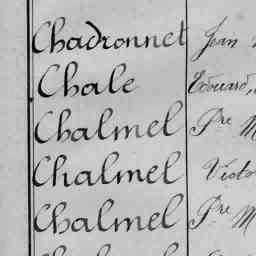 Chadronnet Jean
Chale Edouard,
Chalmel Pre M
Chalmel Victo
Chalmel Pre M